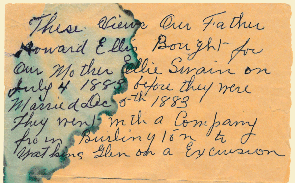 These Views Our Father
Howard Ellis Bought for
Our Mother Ellie Swain on
July 4 1883 before they were
Married Dec 5th 1883
They went with a Company
from Burlington to
Watkins Glen on a Excursion